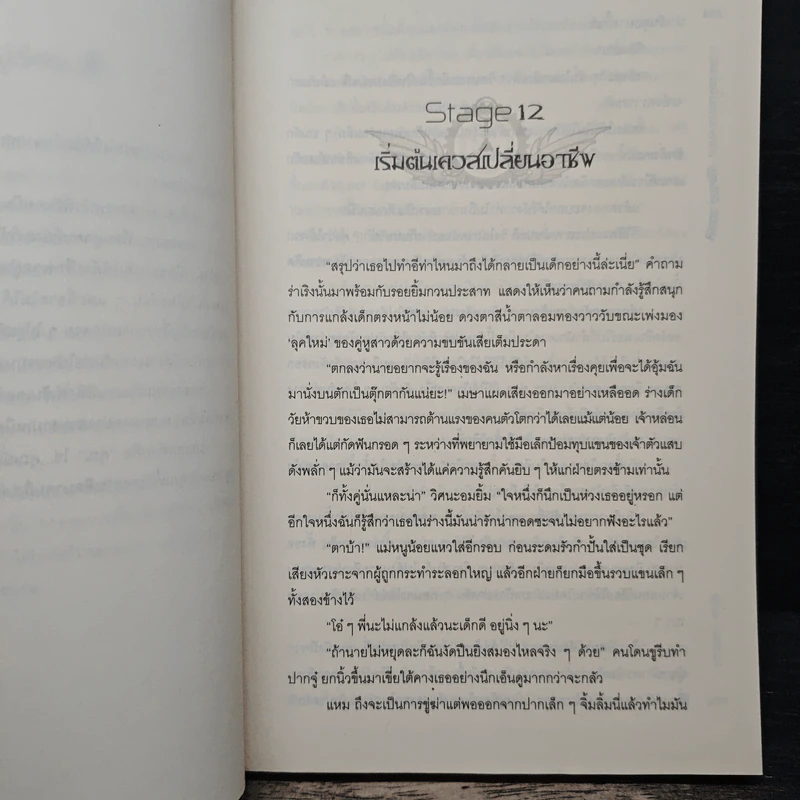 Stage 12
เริ่มต้นเควสเปลี่ยนอาชีพ
"สรุปว่าเธอไปทำอีท่าไหนมาถึงได้กลายเป็นเด็กอย่างนี้ล่ะเนี่ย" คำถาม
ร่าเริงนั้นมาพร้อมกับรอยยิ้มกวนประสาท แสดงให้เห็นว่าคนถามกำลังรู้สึกสนุก
กับการแกล้งเด็กตรงหน้าไม่น้อย ดวงตาสีน้ำตาลอมทองวาววับขณะเพ่งมอง
'ลุคใหม่' ของคู่หูสาวด้วยความขบขันเสียเต็มประดา
"ตกลงว่านายอยากจะรู้เรื่องของฉัน หรือกำลังหาเรื่องคุยเพื่อจะได้อุ้มฉัน
มานั่งบนตักเป็นตุ๊กตากันแน่ยะ!" เมษาแผดเสียงออกมาอย่างเหลืออด ร่างเด็ก
วัยห้าขวบของเธอไม่สามารถต้านแรงของคนตัวโตกว่าได้เลยแม้แต่น้อย เจ้าหล่อน
ก็เลยได้แต่กัดฟันกรอด ๆ ระหว่างที่พยายามใช้มือเล็กป้อมทุบแขนของเจ้าตัวแสบ
ดังพลั่ก ๆ แม้ว่ามันจะสร้างได้แค่ความรู้สึกคันยิบ ๆ ให้แก่ฝ่ายตรงข้ามเท่านั้น
"ก็ทั้งคู่นั่นแหละน่า" วิศนะอมยิ้ม "ใจหนึ่งก็นึกเป็นห่วงเธออยู่หรอก แต่
อีกใจหนึ่งฉันก็รู้สึกว่าเธอในร่างนี้มันน่ารักน่ากอดซะจนไม่อยากฟังอะไรแล้ว"
"ตาบ้า!" แม่หนูน้อยแหวใส่อีกรอบ ก่อนระดมรัวกำปั้นใส่เป็นชุด เรียก
เสียงหัวเราะจากผู้ถูกกระทำระลอกใหญ่ แล้วอีกฝ่ายก็ยกมือขึ้นรวบแขนเล็ก ๆ
ทั้งสองข้างไว้
"โอ๋ ๆ พี่นะไม่แกล้งแล้วนะเด็กดี อยู่นิ่ง ๆ นะ"
"ถ้านายไม่หยุดละก็ฉันงัดปืนยิงสมองไหลจริง ๆ ด้วย" คนโดนขู่รีบทำ
ปากจู๋ ยกนิ้วขึ้นมาเขี่ยใต้คางเธออย่างนึกเอ็นดูมากกว่าจะกลัว
แหม ถึงจะเป็นการขู่ฆ่าแต่พอออกจากปากเล็ก ๆ จิ้มลิ้มนี่แล้วทำไมมัน